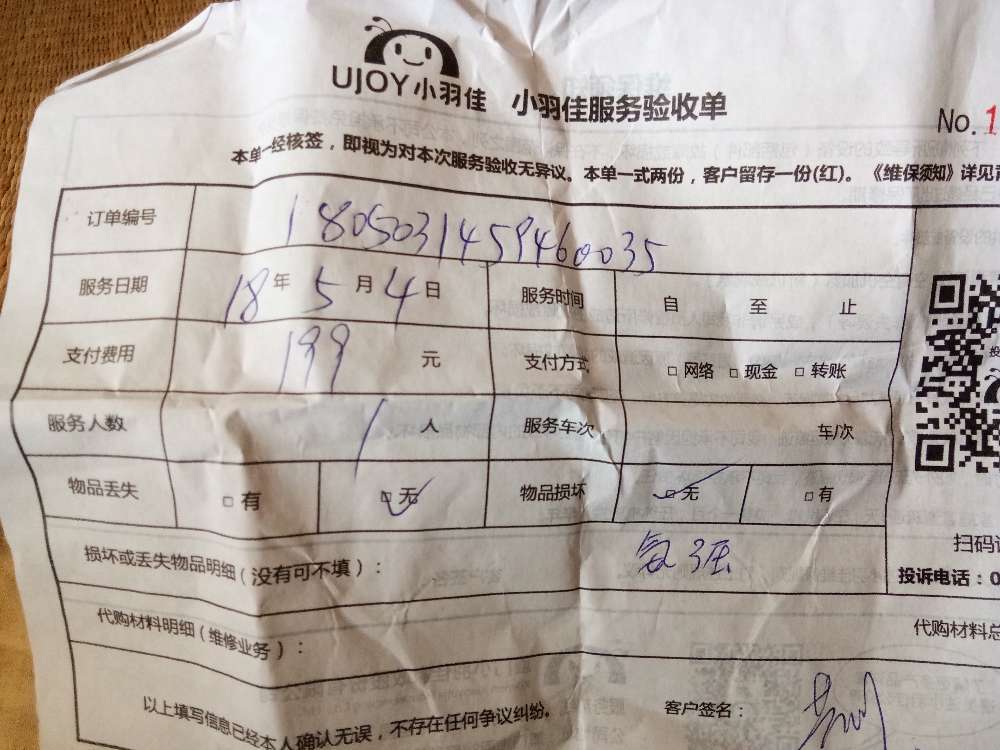 UJOY小羽佳 小羽佳服务验收单
No.1
本单一经核签，即视为对本次服务验收无异议。本单一式两份，客户留存一份(红)。《维保须知》详见
订单编号 1805031459460035
服务日期 18年5月4日 服务时间 自 至 止
支付费用 199 元 支付方式 □网络 □现金 □转账
服务人数 1 人 服务车次 车/次
物品丢失 □有 □无 物品损坏 □无 □有
扫码
损坏或丢失物品明细（没有可不填）：
投诉电话：0
代购材料明细（维修业务）：
代购材料总
以上填写信息已经本人确认无误，不存在任何争议纠纷。 客户签名：